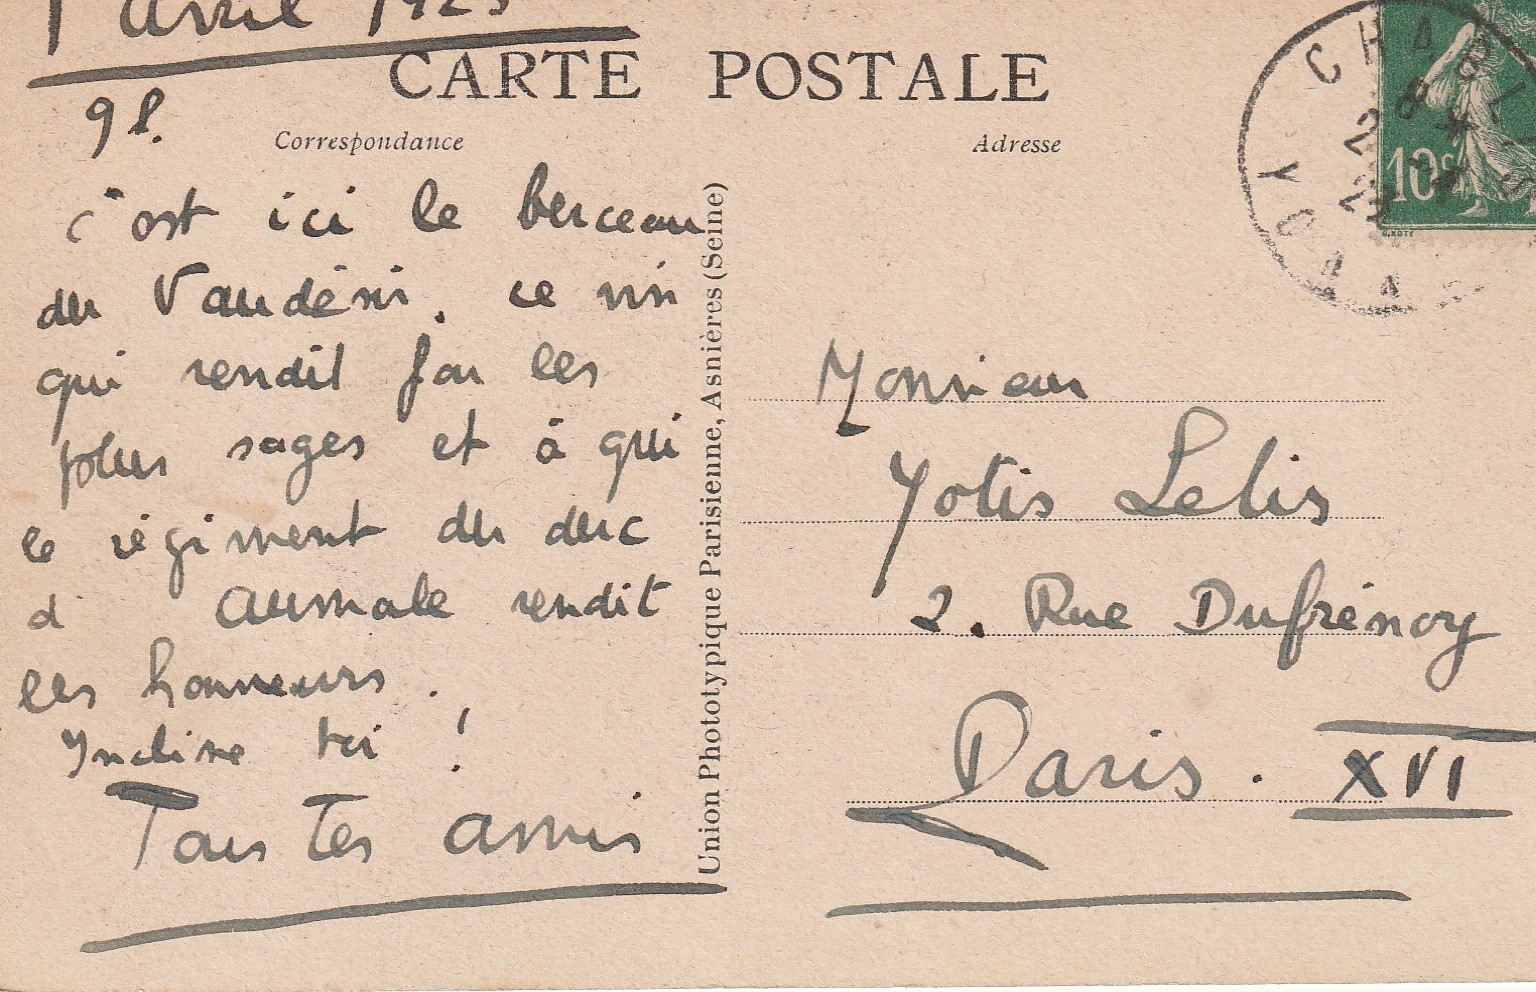 1 avril 1923
CARTE POSTALE
98.
Correspondance
Adresse
c'est ici le berceau
du Vaudésir. ce vin
qui rendit fou les
plus sages et à qui
le régiment du duc
d' Aumale rendit
les honneurs.
Incline toi !
Tous tes amis
Union Phototypique Parisienne, Asnières (Seine)
Monsieur
Yotis Lelis
2. Rue Dufrénoy
Paris. XVI
CHABLIS
YONNE
10c